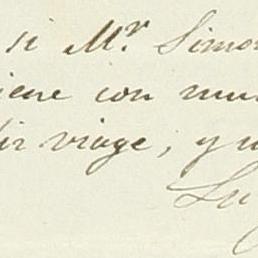 si Mr. Simon
iene con mu
ir viage, y
Lu